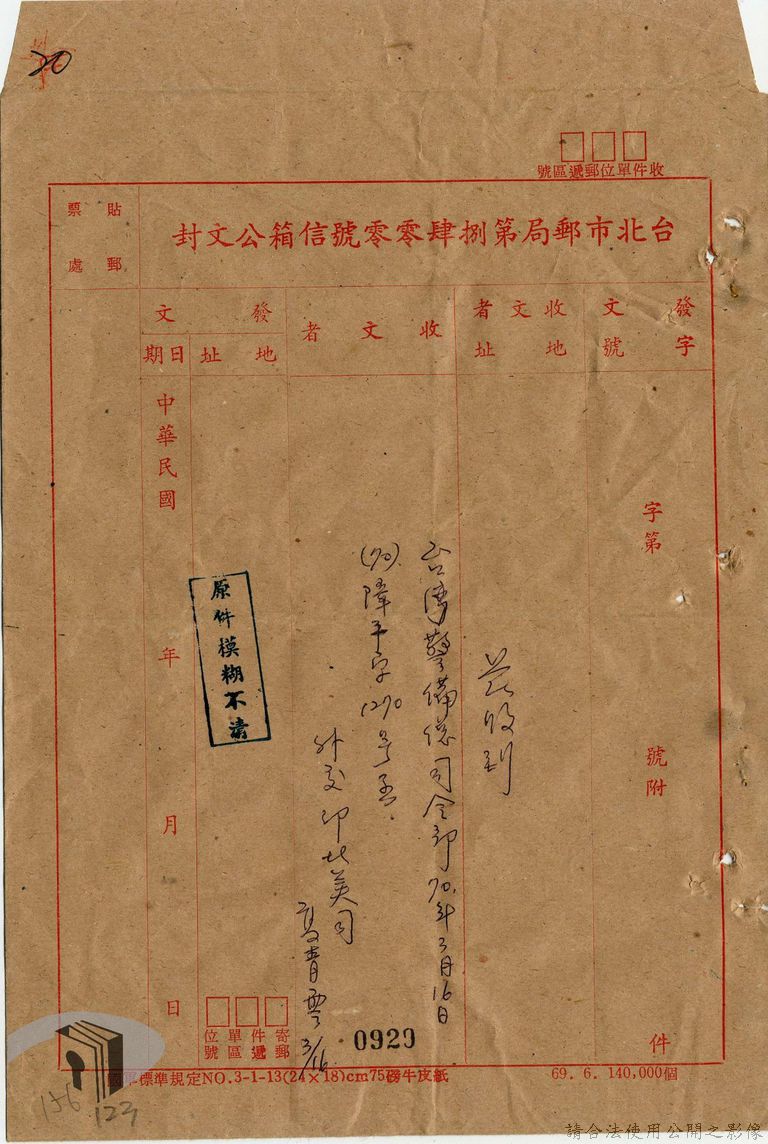 20
收件單位郵遞區號
台北市郵局第捌肆零零號信箱公文封
貼郵
票處
發字
文號
收文者
地址
收文者
發文
地址
日期
字第　號附　件
中華民國　年　月　日
茲收到
台湾警備總司令部70年3月16日
(70)障平字1270号函.
外交部北美司
3/16
原件模糊不清
0929
寄件單位
郵遞區號
國軍標準規定NO.3-1-13(24×18)cm75磅牛皮紙
69. 6. 140,000個
156
123
請合法使用公開之影像